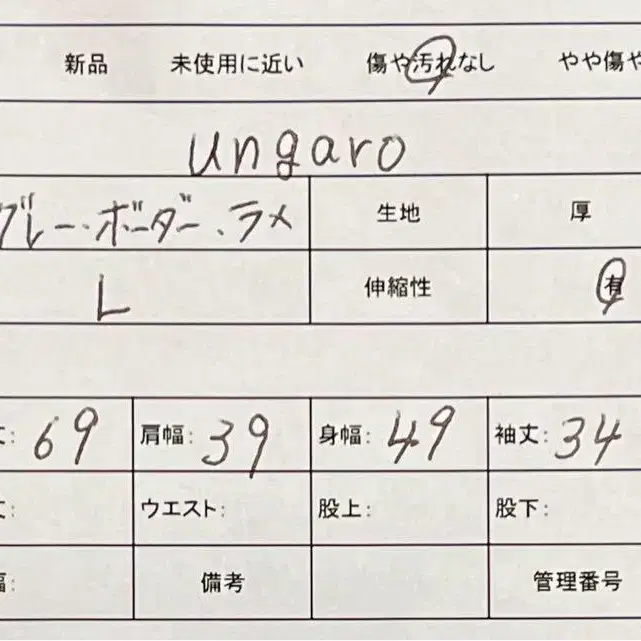 新品 未使用に近い 傷や汚れなし やや傷や
ungaro
グレー・ボーダー・ラメ 生地 厚
L 伸縮性 有
丈: 69 肩幅: 39 身幅: 49 袖丈: 34
丈: ウエスト: 股上: 股下:
幅: 備考 管理番号